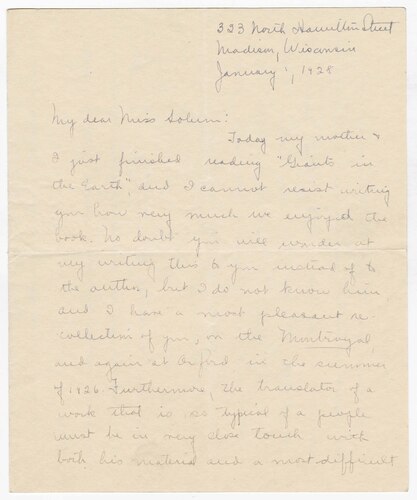 323 North Hamilton Street
Madison, Wisconsin
January 1, 1928
My dear Miss Solum:
Today my mother &
I just finished reading "Giants in
the Earth", and I cannot resist writing
you how very much we enjoyed the
book. No doubt you will wonder at
my writing this to you instead of to
the author, but I do not know him,
and I have a most pleasant re
collection of you, on the Montroyal
and again at Oxford in the summer
of 1926. Furthermore, the translator of a
work that is so typical of a people
must be in very close touch with
both his material and a most difficult